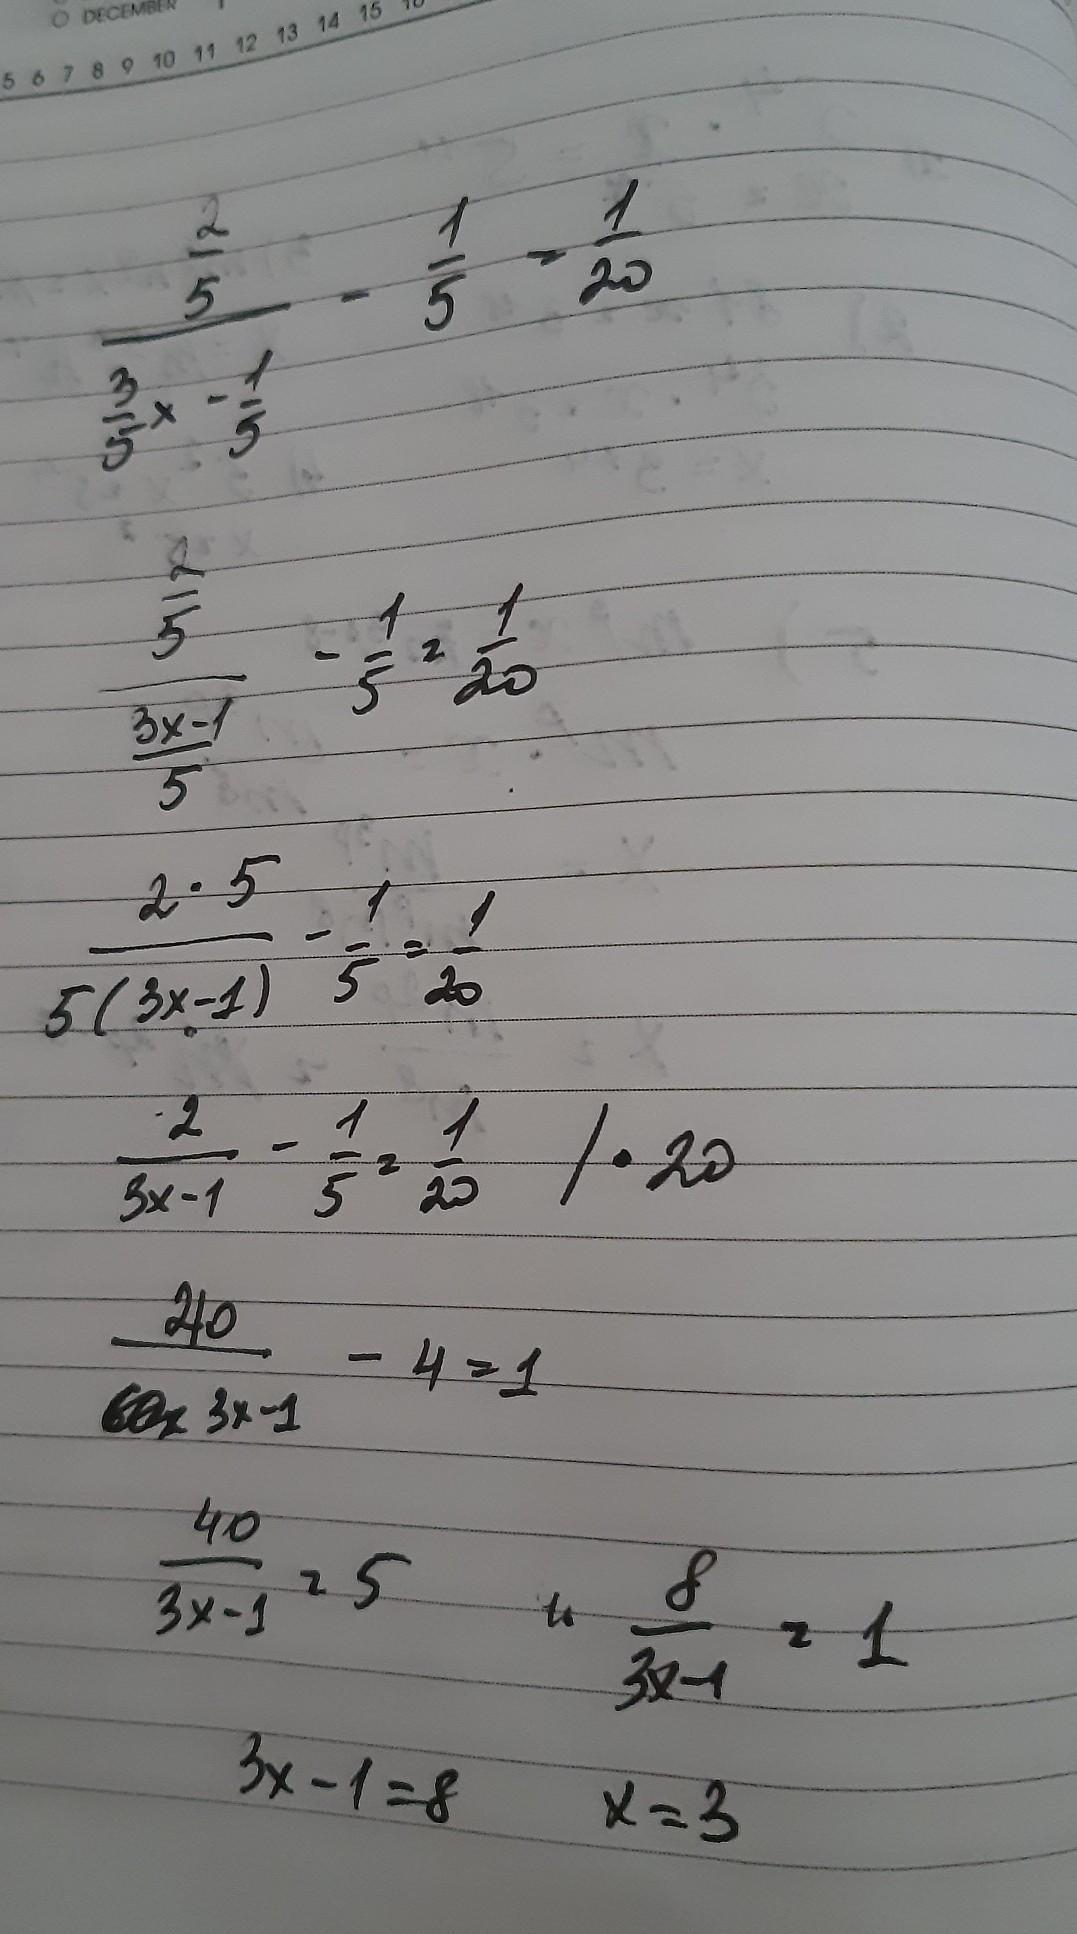 DECEMBER
5 6 7 8 9 10 11 12 13 14 15 16
2/5 / (3/5 x - 1/5) - 1/5 = 1/20
2/5 / ((3x-1)/5) - 1/5 = 1/20
2·5 / 5(3x-1) - 1/5 = 1/20
2/(3x-1) - 1/5 = 1/20 /·20
40/(3x-1) - 4 = 1
40/(3x-1) = 5 8/(3x-1) = 1
3x-1=8 x=3